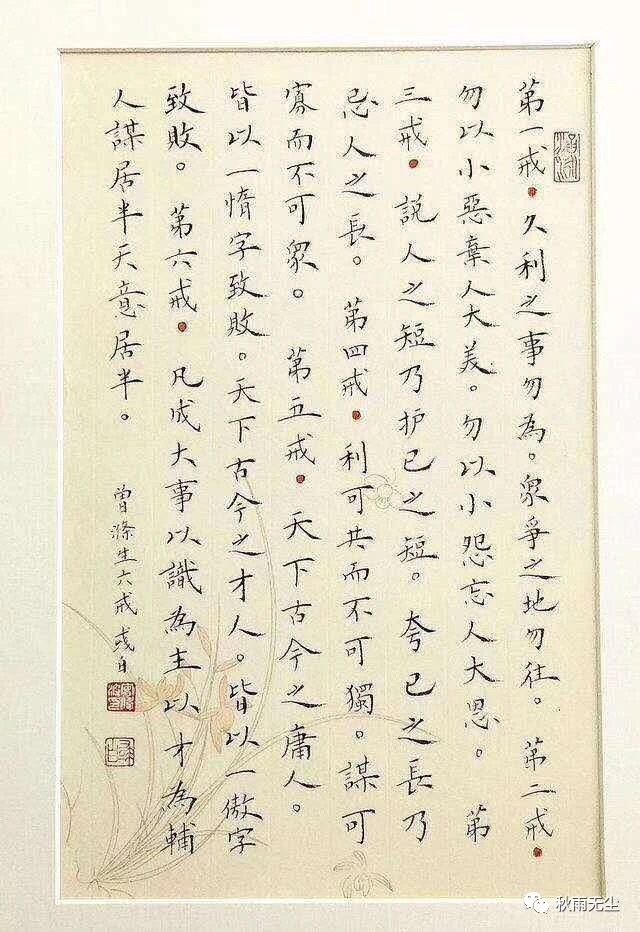 第一戒。久利之事勿為。衆爭之地勿往。第二戒。
勿以小惡棄人大美。勿以小怨忘人大恩。第
三戒。説人之短乃护己之短。夸己之長乃
忌人之長。第四戒。利可共而不可獨。謀可
寡而不可衆。第五戒。天下古今之庸人。
皆以一惰字致敗。天下古今之才人。皆以一傲字
致敗。第六戒。凡成大事以識為主以才為輔
人謀居半天意居半。
曾滌生六戒
秋雨无尘